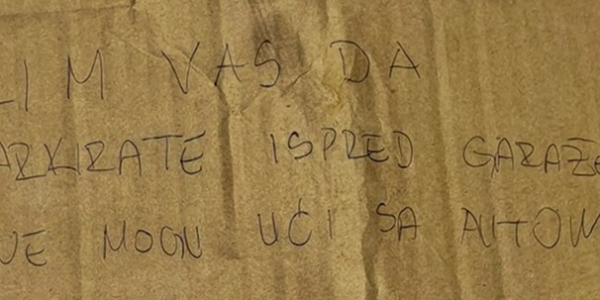 LIM VAS DA
ARKIRATE ISPRED GARAŽE
NE MOGU UĆI SA AUTOM